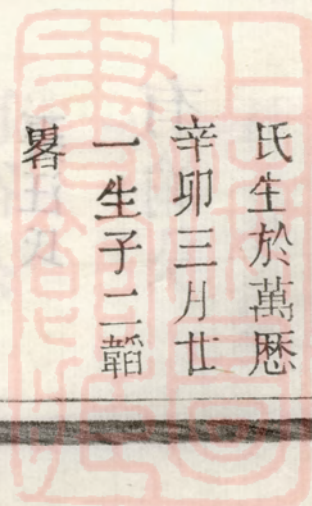 氏生於萬厯
辛卯三月廿
一生子二韜
畧